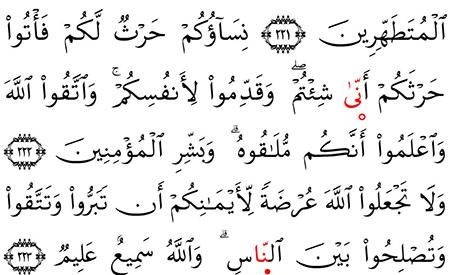 ٱلْمُتَطَهِّرِينَ ٢٢١ نِسَآؤُكُمْ حَرْثٌ لَّكُمْ فَأْتُوا۟
حَرْثَكُمْ أَنّىٰ شِئْتُمْ ۖ وَقَدِّمُوا۟ لِأَنفُسِكُمْ ۚ وَٱتَّقُوا۟ ٱللَّهَ
وَٱعْلَمُوٓا۟ أَنَّكُم مُّلَٰقُوهُ ۗ وَبَشِّرِ ٱلْمُؤْمِنِينَ ٢٢٢
وَلَا تَجْعَلُوا۟ ٱللَّهَ عُرْضَةً لِّأَيْمَٰنِكُمْ أَن تَبَرُّوا۟ وَتَتَّقُوا۟
وَتُصْلِحُوا۟ بَيْنَ ٱلنَّاسِ ۗ وَٱللَّهُ سَمِيعٌ عَلِيمٌ ٢٢٣